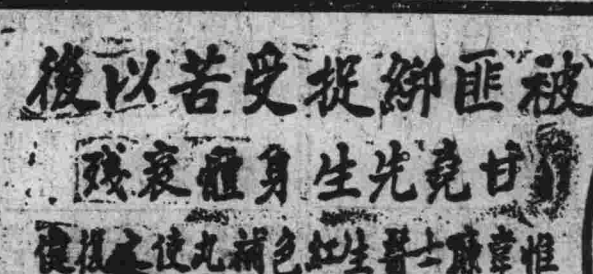 被匪綁捉受苦以後
甘堯先生身體衰殘
惟韋廉士醫生紅色補丸使之復健